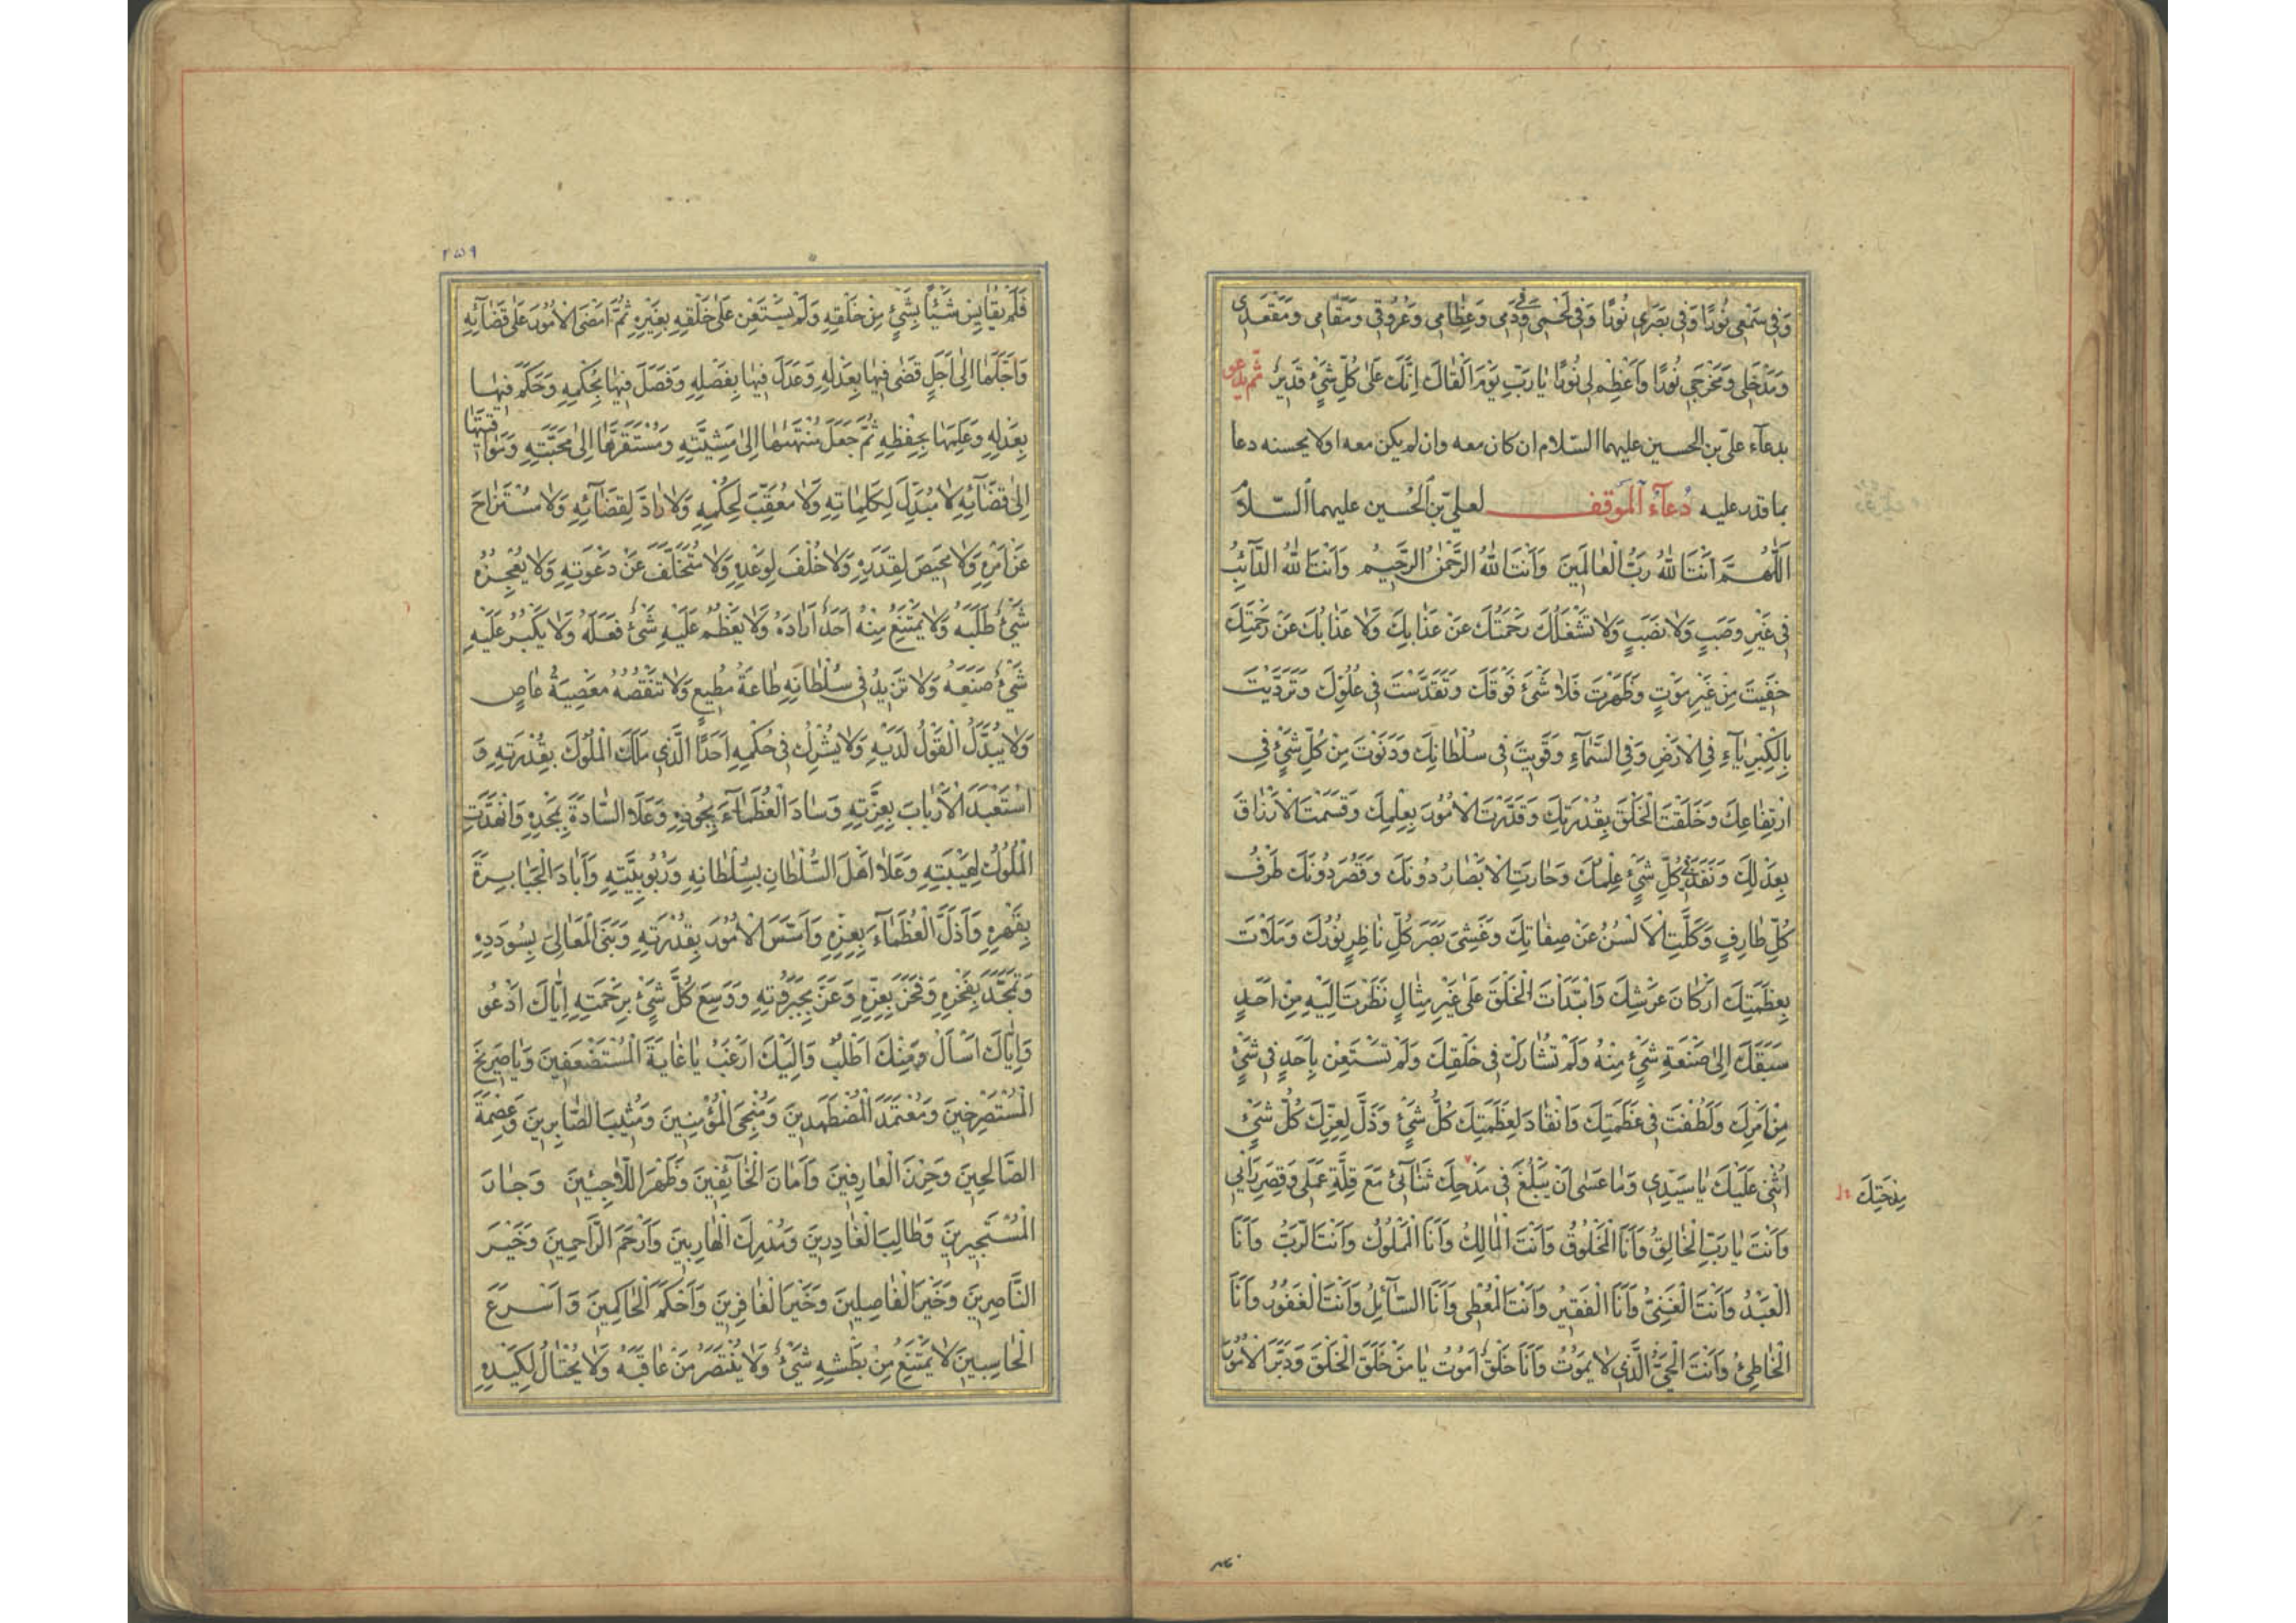 وَفِي سَمْعِي نُورًا وَفِي بَصَرِي نُورًا وَفِي لَحْمِي وَفِي دَمِي وَعِظَامِي وَعُرُوقِي وَمَقَامِي وَمَقْعَدِي
وَمَدْخَلِي وَمَخْرَجِي نُورًا وَأَعْظِمْ لِي نُورًا يَا رَبِّ يَوْمَ أَلْقَاكَ إِنَّكَ عَلَى كُلِّ شَيْءٍ قَدِيرٌ ثم يدعو
بدعاء علي بن الحسين عليهما السلام ان كان معه وان لم يكن معه اولا يحسنه دعا
بما قدر عليه دُعاءُ الموقف لعلي بن الحسين عليهما السلام
اَللّٰهُمَّ اَنْتَ اللّٰهُ رَبُّ الْعَالَمِينَ وَاَنْتَ اللّٰهُ الرَّحْمٰنُ الرَّحِيمُ وَاَنْتَ اللّٰهُ الدَّآئِبُ
فِي غَيْرِ وَصَبٍ وَلَا نَصَبٍ وَلَا تَشْغَلُكَ رَحْمَتُكَ عَنْ عَذَابِكَ وَلَا عَذَابُكَ عَنْ رَحْمَتِكَ
خَفِيتَ مِنْ غَيْرِ مَوْتٍ وَظَهَرْتَ فَلَا شَيْءَ فَوْقَكَ وَتَقَدَّسْتَ فِي عُلُوِّكَ وَتَرَدَّيْتَ
بِالْكِبْرِيَآءِ فِي الْاَرْضِ وَفِي السَّمَآءِ وَقَوِيتَ فِي سُلْطَانِكَ وَدَنَوْتَ مِنْ كُلِّ شَيْءٍ فِي
ارْتِفَاعِكَ وَخَلَقْتَ الْخَلْقَ بِقُدْرَتِكَ وَقَدَّرْتَ الْاُمُورَ بِعِلْمِكَ وَقَسَمْتَ الْاَرْزَاقَ
بِعَدْلِكَ وَنَفَذَ فِي كُلِّ شَيْءٍ عِلْمُكَ وَحَارَتِ الْاَبْصَارُ دُونَكَ وَقَصُرَ دُونَكَ طَرْفُ
كُلِّ طَارِفٍ وَكَلَّتِ الْاَلْسُنُ عَنْ صِفَاتِكَ وَغَشِيَ بَصَرَ كُلِّ نَاظِرٍ نُورُكَ وَمَلَأْتَ
بِعَظَمَتِكَ اَرْكَانَ عَرْشِكَ وَابْتَدَأْتَ الْخَلْقَ عَلَى غَيْرِ مِثَالٍ نَظَرْتَ اِلَيْهِ مِنْ اَحَدٍ
سَبَقَكَ اِلَى صَنْعَةِ شَيْءٍ مِنْهُ وَلَمْ تُشَارَكْ فِي خَلْقِكَ وَلَمْ تَسْتَعِنْ بِاَحَدٍ فِي شَيْءٍ
مِنْ اَمْرِكَ وَلَطُفْتَ فِي عَظَمَتِكَ وَانْقَادَ لِعَظَمَتِكَ كُلُّ شَيْءٍ وَذَلَّ لِعِزِّكَ كُلُّ شَيْءٍ
اُثْنِي عَلَيْكَ يَا سَيِّدِي وَمَا عَسَى اَنْ يَبْلُغَ فِي مَدْحِكَ ثَنَآئِي مَعَ قِلَّةِ عَمَلِي وَقِصَرِ رَأْيِي
مِدْحَتِكَ
وَاَنْتَ يَا رَبِّ الْخَالِقُ وَاَنَا الْمَخْلُوقُ وَاَنْتَ الْمَالِكُ وَاَنَا الْمَمْلُوكُ وَاَنْتَ الرَّبُّ وَاَنَا
الْعَبْدُ وَاَنْتَ الْغَنِيُّ وَاَنَا الْفَقِيرُ وَاَنْتَ الْمُعْطِي وَاَنَا السَّآئِلُ وَاَنْتَ الْغَفُورُ وَاَنَا
الْخَاطِئُ وَاَنْتَ الْحَيُّ الَّذِي لَا يَمُوتُ وَاَنَا خَلْقٌ اَمُوتُ يَا مَنْ خَلَقَ الْخَلْقَ وَدَبَّرَ الْاُمُورَ
۲۵۹
فَلَمْ يُقَايِسْ شَيْئًا بِشَيْءٍ مِنْ خَلْقِهِ وَلَمْ يَسْتَعِنْ عَلَى خَلْقِهِ بِغَيْرِهِ ثُمَّ اَمْضَى الْاُمُورَ عَلَى قَضَآئِهِ
وَاَجَّلَهَا اِلَى اَجَلٍ قَضَى فِيهَا بِعَدْلِهِ وَعَدَلَ فِيهَا بِفَضْلِهِ وَفَصَلَ فِيهَا بِحُكْمِهِ وَحَكَمَ فِيهَا
بِعَدْلِهِ وَعَلِمَهَا بِحِفْظِهِ ثُمَّ جَعَلَ مُنْتَهَاهَا اِلَى مَشِيَّتِهِ وَمُسْتَقَرَّهَا اِلَى مَحَبَّتِهِ وَمَوَاقِيتَهَا
اِلَى قَضَآئِهِ لَا مُبَدِّلَ لِكَلِمَاتِهِ وَلَا مُعَقِّبَ لِحُكْمِهِ وَلَا رَادَّ لِقَضَآئِهِ وَلَا مُسْتَزَاحَ
عَنْ اَمْرِهِ وَلَا مَحِيصَ لِقَدَرِهِ وَلَا خُلْفَ لِوَعْدِهِ وَلَا مُتَخَلَّفَ عَنْ دَعْوَتِهِ وَلَا يُعْجِزُهُ
شَيْءٌ طَلَبَهُ وَلَا يَمْتَنِعُ مِنْهُ اَحَدٌ اَرَادَهُ وَلَا يَعْظُمُ عَلَيْهِ شَيْءٌ فَعَلَهُ وَلَا يَكْبُرُ عَلَيْهِ
شَيْءٌ صَنَعَهُ وَلَا تَزِيدُ فِي سُلْطَانِهِ طَاعَةُ مُطِيعٍ وَلَا تَنْقُصُهُ مَعْصِيَةُ عَاصٍ
وَلَا يُبَدَّلُ الْقَوْلُ لَدَيْهِ وَلَا يُشْرِكُ فِي حُكْمِهِ اَحَدًا الَّذِي مَلَكَ الْمُلُوكَ بِقُدْرَتِهِ وَ
اسْتَعْبَدَ الْاَرْبَابَ بِعِزَّتِهِ وَسَادَ الْعُظَمَآءَ بِجُودِهِ وَعَلَا السَّادَةَ بِمَجْدِهِ وَانْهَدَّتِ
الْمُلُوكُ لِهَيْبَتِهِ وَعَلَا اَهْلَ السُّلْطَانِ بِسُلْطَانِهِ وَرُبُوبِيَّتِهِ وَاَبَادَ الْجَبَابِرَةَ
بِقَهْرِهِ وَاَذَلَّ الْعُظَمَآءَ بِعِزِّهِ وَاَسَّسَ الْاُمُورَ بِقُدْرَتِهِ وَبَنَى الْمَعَالِيَ بِسُودَدِهِ
وَتَمَجَّدَ بِفَخْرِهِ وَفَخَرَ بِعِزِّهِ وَعَزَّ بِجَبَرُوتِهِ وَوَسِعَ كُلَّ شَيْءٍ بِرَحْمَتِهِ اِيَّاكَ اَدْعُو
وَاِيَّاكَ اَسْأَلُ وَمِنْكَ اَطْلُبُ وَاِلَيْكَ اَرْغَبُ يَا غَايَةَ الْمُسْتَضْعَفِينَ وَيَا صَرِيخَ
الْمُسْتَصْرِخِينَ وَمُعْتَمَدَ الْمُضْطَهَدِينَ وَمُنْجِيَ الْمُؤْمِنِينَ وَمُثِيبَ الصَّابِرِينَ وَعِصْمَةَ
الصَّالِحِينَ وَحِرْزَ الْعَارِفِينَ وَاَمَانَ الْخَآئِفِينَ وَظَهْرَ اللَّاجِئِينَ وَجَارَ
الْمُسْتَجِيرِينَ وَطَالِبَ الْغَادِرِينَ وَمُدْرِكَ الْهَارِبِينَ وَاَرْحَمَ الرَّاحِمِينَ وَخَيْرَ
النَّاصِرِينَ وَخَيْرَ الْفَاصِلِينَ وَخَيْرَ الْغَافِرِينَ وَاَحْكَمَ الْحَاكِمِينَ وَاَسْرَعَ
الْحَاسِبِينَ لَا يَمْتَنِعُ مِنْ بَطْشِهِ شَيْءٌ وَلَا يَنْتَصِرُ مَنْ عَاقَبَهُ وَلَا يُحْتَالُ لِكَيْدِهِ